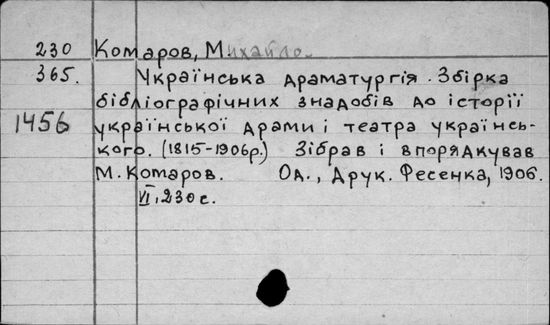 230 Комаров, Михайло.
365. Українська драматургія. Збірка
бібліографічних знадобів до історії
1456 української драми і театра українсь-
кого. (1815-1906р.) Зібрав і впорядкував
М. Комаров. Од., Друк. Фесенка, 1906.
VI, 230 с.